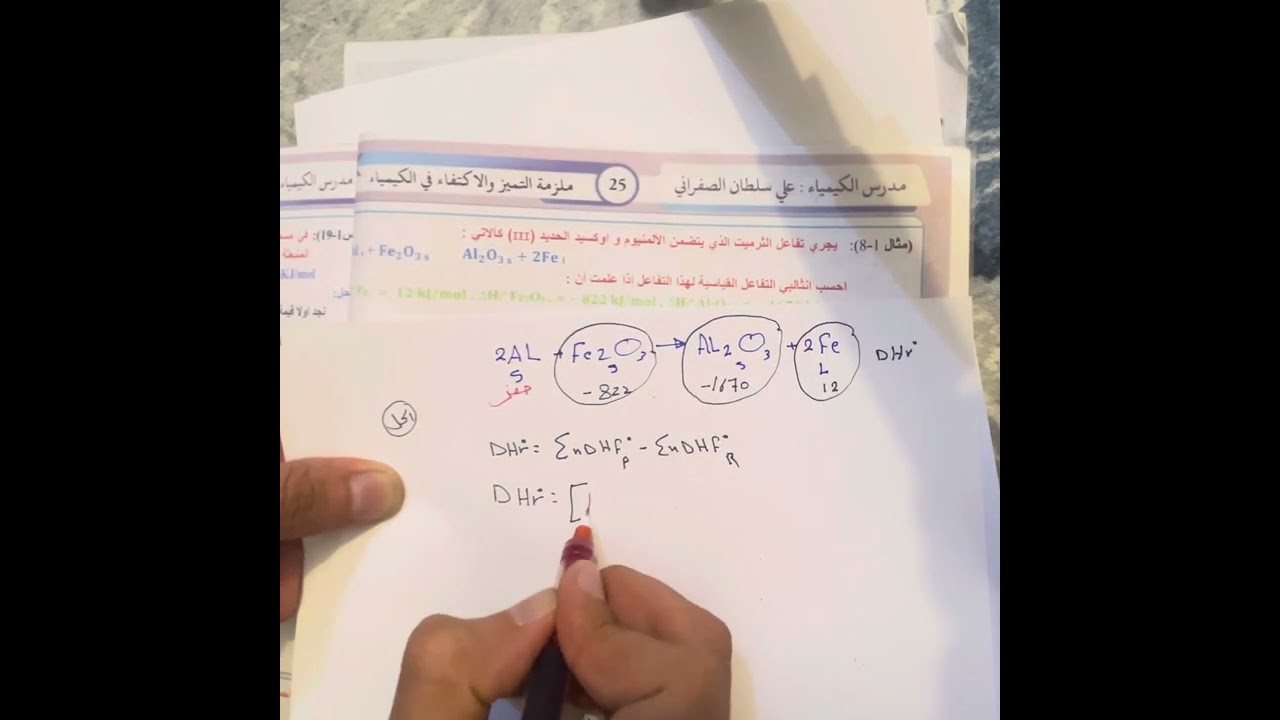 مدرس الكيمياء : علي سلطان الصفراني 25 ملزمة التميز والاكتفاء في الكيمياء
مدرس الكيمياء
(مثال 1-8): يجري تفاعل الثرميت الذي يتضمن الالمنيوم و اوكسيد الحديد (III) كالاتي :
+ Fe₂O₃ s Al₂O₃ s + 2Fe l
احسب انثالبي التفاعل القياسية لهذا التفاعل اذا علمت ان :
= 12 kJ/mol , ΔHf° Fe₂O₃ = - 822 kJ/mol , ΔHf° Al₂O₃
19-1): في
KJ/mol
نجد اولا قيمة
2AL + Fe2O3 → AL2O3 + 2Fe DHr°
S S S L
صفر -822 -1670 12
الحل
DHr° = ΣnDHf°P - ΣnDHf°R
DHr° = [